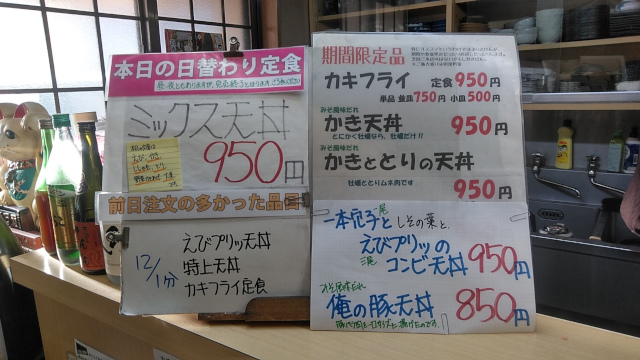 本日の日替わり定食
ミックス天丼
950円
前日注文の多かった品目
12/1分
えびプリッ天丼
特上天丼
カキフライ定食
期間限定品
カキフライ 定食950円
単品 並皿750円 小皿500円
みそ風味だれ
かき天丼 950円
とにかく牡蠣なら、牡蠣だけ!!
みそ風味だれ
かきととりの天丼
牡蠣ととりムネ肉です
950円
一本穴子としその葉と、
えびプリッの
二尾
コンビ天丼950円
みそ風味だれ
俺の豚天丼 850円